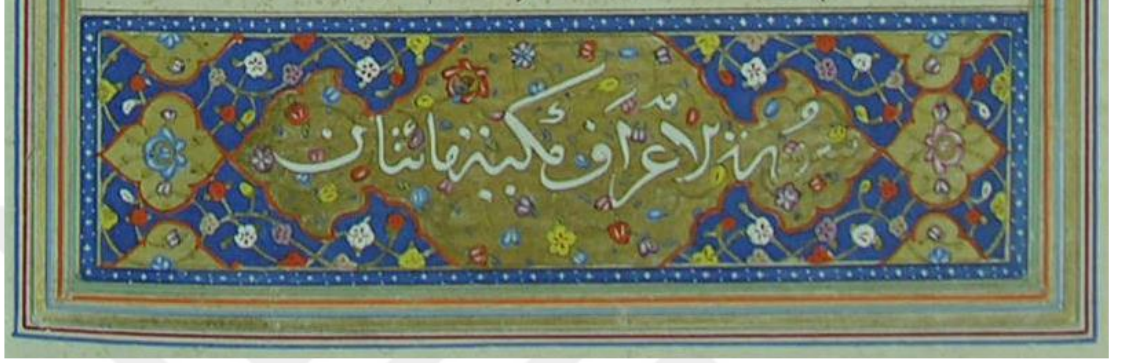 سورة الاعراف مكية مائتان